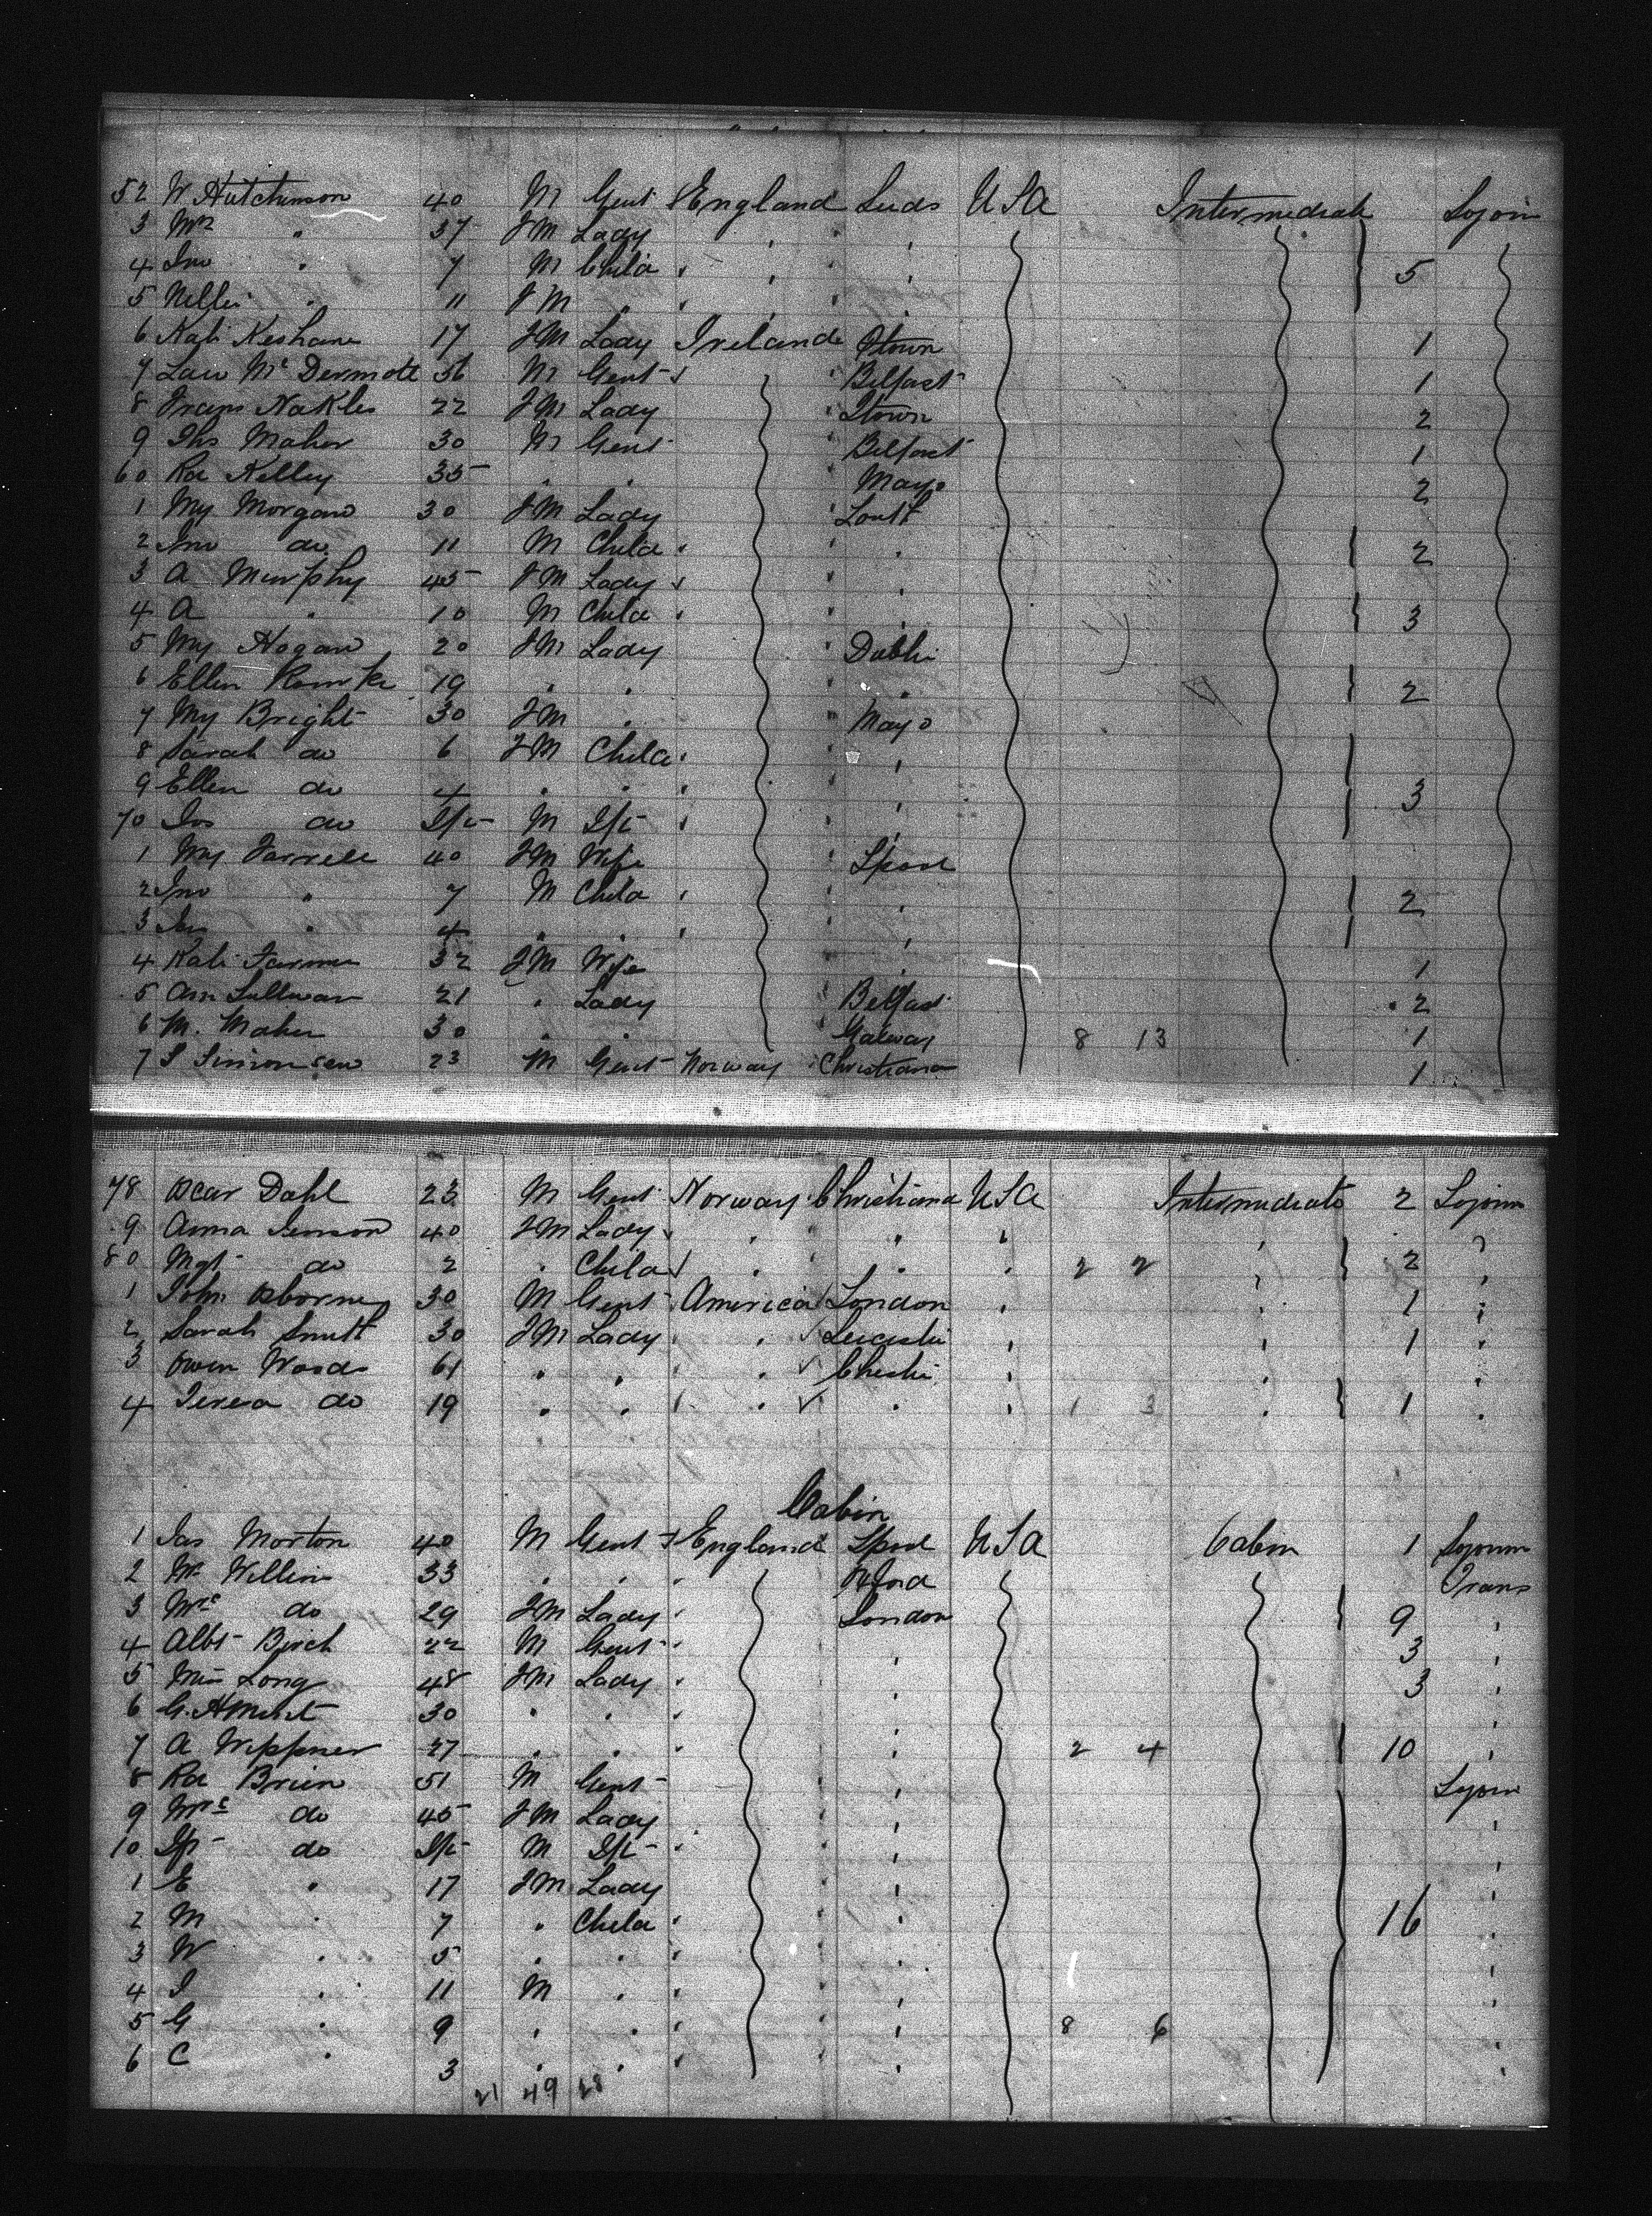 52 W. Hutchinson 40 M Gent England Leeds USA Intermediate Sojourn
3 Mrs " 37 FM Lady " " "
4 Jno " 7 M Child " " " 5
5 Nellie " 11 FM " " "
6 Kati Keshane 17 FM Lady Ireland Qtown 1
7 Law McDermott 36 M Gent Belfast 1
8 22 FM Lady Qtown 2
9 Ths Maher 30 M Gent Belfast 1
60 Rd Kelley 35 " " Mayo 2
1 My Morgan 30 FM Lady Louth
2 Jno do 11 M Child " " 2
3 A Murphy 45 FM Lady " "
4 A " 10 M Child " " 3
5 My Hogan 20 FM Lady Dubli
6 Ellen Rourke 19 " " " 2
7 My Bright 30 FM " Mayo
8 Sarah do 6 FM Child " "
9 Ellen do 4 " " " " 3
70 Jos do Ift M Ift " "
1 My Farrell 40 FM Wife Lpool
2 Jno " 7 M Child " " 2
3 " 4 " " " "
4 Kati Farmer 32 FM Wife " 1
5 Ann Sullivan 21 " Lady Belfast 2
6 M. Maher 30 " " Galway 8 13 1
7 S Simonsen 23 M Gent Norway Christiana 1
78 Oscar Dahl 23 M Gent Norway Christiana USA Intermediate 2 Sojourn
9 Anna Jenson 40 FM Lady " " " " "
80 Mgt do 2 " Child " " " 2 2 " 2 "
1 John Osborne 30 M Gent America London " " 1 "
2 Sarah Smith 30 FM Lady " " Leicester " " 1 "
3 Owen Woods 61 " " " " Cheshi " "
4 Teresa do 19 " " " " " " 1 3 " 1 "
Cabin
1 Jas Morton 40 M Gent England Lpool USA Cabin 1 Sojourn
2 Mr Willin 33 " " " Trans
3 Mrs do 29 FM Lady " London 9 "
4 Albt Birch 22 M Gent " " 3 "
5 Miss Long 48 FM Lady " " 3 "
6 30 " " " " "
7 A Wippner 27 " " " " 2 4 10 "
8 Rd Brien 51 M Gent " Sojourn
9 Mrs do 45 FM Lady " "
10 Ift do Ift M Ift " " "
1 E " 17 FM Lady " "
2 M " 7 " Child " " 16 "
3 W " 5 " " " " "
4 J " 11 M " " " "
5 G " 9 " " " " 8 6 "
6 C " 3 " " " " "
21 49 28